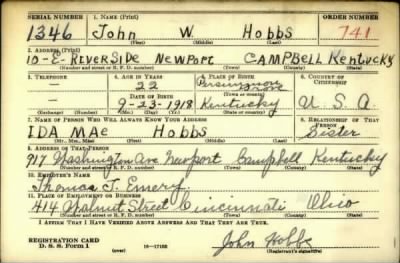 SERIAL NUMBER 1. NAME (Print) ORDER NUMBER
1346 John W. Hobbs 741
(First) (Middle) (Last)
2. ADDRESS (Print)
10-E-RIVERSIDE NEWPORT CAMPBELL KENTUCKY
(Number and street or R. F. D. number) (Town) (County) (State)
3. TELEPHONE 4. AGE IN YEARS 5. PLACE OF BIRTH 6. COUNTRY OF CITIZENSHIP
22 Persimmon Grove
DATE OF BIRTH (Town or county)
9-23-1918 Kentucky U.S.A.
(Exchange) (Number) (Mo.) (Day) (Yr.) (State or country)
7. NAME OF PERSON WHO WILL ALWAYS KNOW YOUR ADDRESS 8. RELATIONSHIP OF THAT PERSON
IDA MAE Hobbs Sister
(Mr., Mrs., Miss) (First) (Middle) (Last)
9. ADDRESS OF THAT PERSON
917 Washington Ave Newport Campbell Kentucky
(Number and street or R. F. D. number) (Town) (County) (State)
10. EMPLOYER'S NAME
Thomas J. Emery.
11. PLACE OF EMPLOYMENT OR BUSINESS
414 Walnut Street Cincinnati Ohio
(Number and street or R. F. D. number) (Town) (County) (State)
I AFFIRM THAT I HAVE VERIFIED ABOVE ANSWERS AND THAT THEY ARE TRUE.
REGISTRATION CARD
D. S. S. Form 1 (over) 16-17105 John Hobbs
(Registrant's signature)